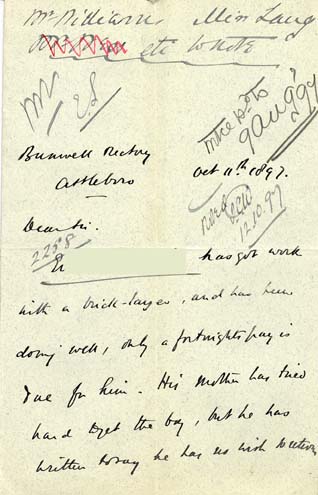 Mr Williams Miss Lang
etc White
Bunwell Rectory
Attleboro
Oct 11th 1897.
Dear Sir.
12.10.97
2258
E has got work
with a brick-layer, and has been
doing well, only a fortnights pay is
due for him. His mother has tried
hard to get the boy, but he has
written to say he has no wish to return